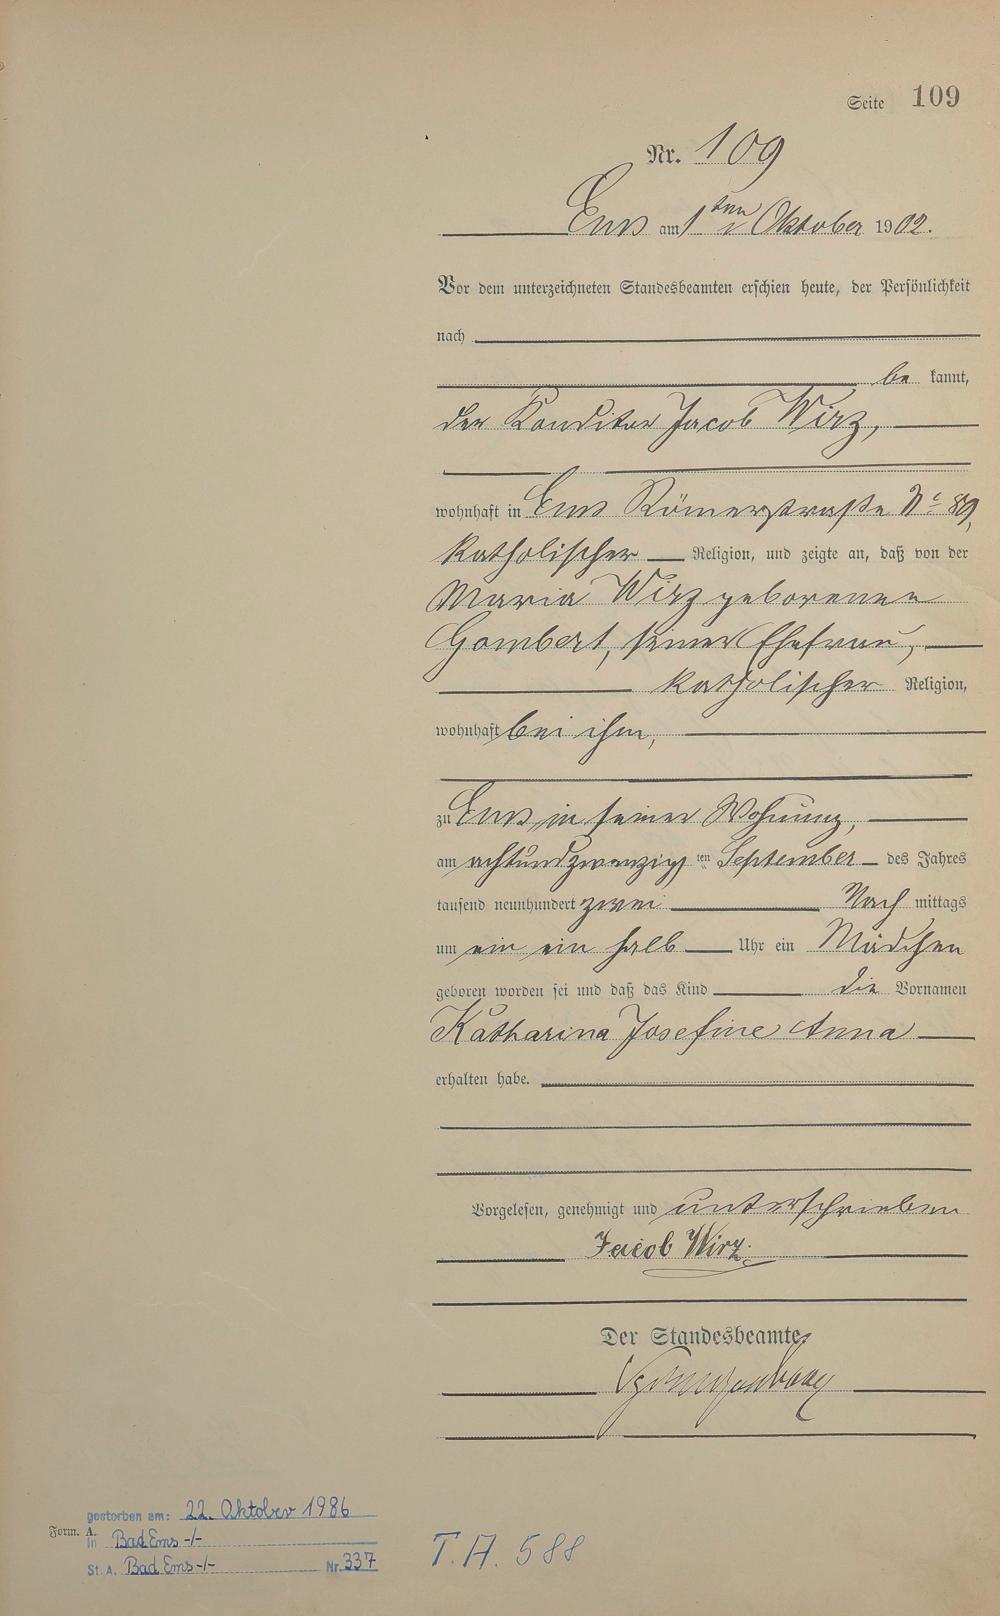 Seite 109
Nr. 109
Ems am 1ten Oktober 1902.
Vor dem unterzeichneten Standesbeamten erschien heute, der Persönlichkeit
nach
be kannt,
der Konditor Jacob Wirz,
wohnhaft in Ems Römerstraße No 89,
katholischer Religion, und zeigte an, daß von der
Maria Wirz geborenen
Gombert, seiner Ehefrau,
katholischer Religion,
wohnhaft bei ihm,
zu Ems in seiner Wohnung,
am achtundzwanzig ten September des Jahres
tausend neunhundert zwei Nach mittags
um ein ein halb Uhr ein Mädchen
geboren worden sei und daß das Kind die Vornamen
Katharina Josefine Anna
erhalten habe.
Vorgelesen, genehmigt und unterschrieben
Jacob Wirz.
Der Standesbeamte
gestorben am: 22. Oktober 1986
Form. A.
in Bad Ems -/-
St. A. Bad Ems -/- Nr. 337
T. A. 588